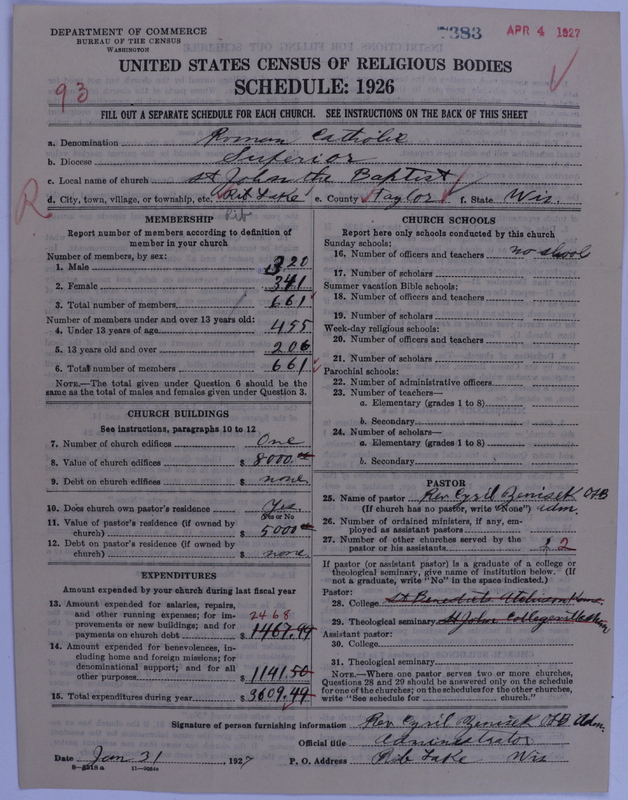 DEPARTMENT OF COMMERCE
BUREAU OF THE CENSUS
WASHINGTON
7383
APR 4 1927
UNITED STATES CENSUS OF RELIGIOUS BODIES
SCHEDULE: 1926
93
FILL OUT A SEPARATE SCHEDULE FOR EACH CHURCH. SEE INSTRUCTIONS ON THE BACK OF THIS SHEET
a. Denomination Roman Catholic
b. Diocese Superior
c. Local name of church St Johns the Baptist
d. City, town, village, or township, etc. Rib Lake e. County Taylor f. State Wis.
R
Rib
MEMBERSHIP
Report number of members according to definition of member in your church
Number of members, by sex:
1. Male 320
2. Female 341
3. Total number of members 661
Number of members under and over 13 years old:
4. Under 13 years of age 455
5. 13 years old and over 206
6. Total number of members 661
NOTE.—The total given under Question 6 should be the
same as the total of males and females given under Question 3.
CHURCH BUILDINGS
See instructions, paragraphs 10 to 12
7. Number of church edifices One
8. Value of church edifices $ 8000.00
9. Debt on church edifices $ none
10. Does church own pastor's residence? Yes
(Yes or No)
11. Value of pastor's residence (if owned by
church) $ 5000
12. Debt on pastor's residence (if owned by
church) $ none
EXPENDITURES
Amount expended by your church during last fiscal year
13. Amount expended for salaries, repairs,
and other running expenses; for im-
provements or new buildings; and for
payments on church debt $ 1467.99
2468
14. Amount expended for benevolences, in-
cluding home and foreign missions; for
denominational support; and for all
other purposes $ 1141.50
15. Total expenditures during year $ 3609.49
CHURCH SCHOOLS
Report here only schools conducted by this church
Sunday schools:
16. Number of officers and teachers no school
17. Number of scholars
Summer vacation Bible schools:
18. Number of officers and teachers
19. Number of scholars
Week-day religious schools:
20. Number of officers and teachers
21. Number of scholars
Parochial schools:
22. Number of administrative officers
23. Number of teachers—
a. Elementary (grades 1 to 8)
b. Secondary
24. Number of scholars—
a. Elementary (grades 1 to 8)
b. Secondary
PASTOR
25. Name of pastor Rev. Cyril Zenisek OSB
(If church has no pastor, write "None") adm.
26. Number of ordained ministers, if any, em-
ployed as assistant pastors
27. Number of other churches served by the
pastor or his assistants 2
If pastor (or assistant pastor) is a graduate of a college or
theological seminary, give name of institution below. (If
not a graduate, write "No" in the space indicated.)
Pastor:
28. College St Benedicts Atchison Kans
29. Theological seminary St Johns Collegeville Minn
Assistant pastor:
30. College
31. Theological seminary
NOTE.—Where one pastor serves two or more churches,
Questions 28 and 29 should be answered only on the schedule
for one of the churches; on the schedules for the other churches,
write "See schedule for church."
Signature of person furnishing information Rev. Cyril Zenisek OSB Adm.
Official title Administrator
Date Jan 31, 1927 P. O. Address Rib Lake Wis
8—5218 a 11—9084a